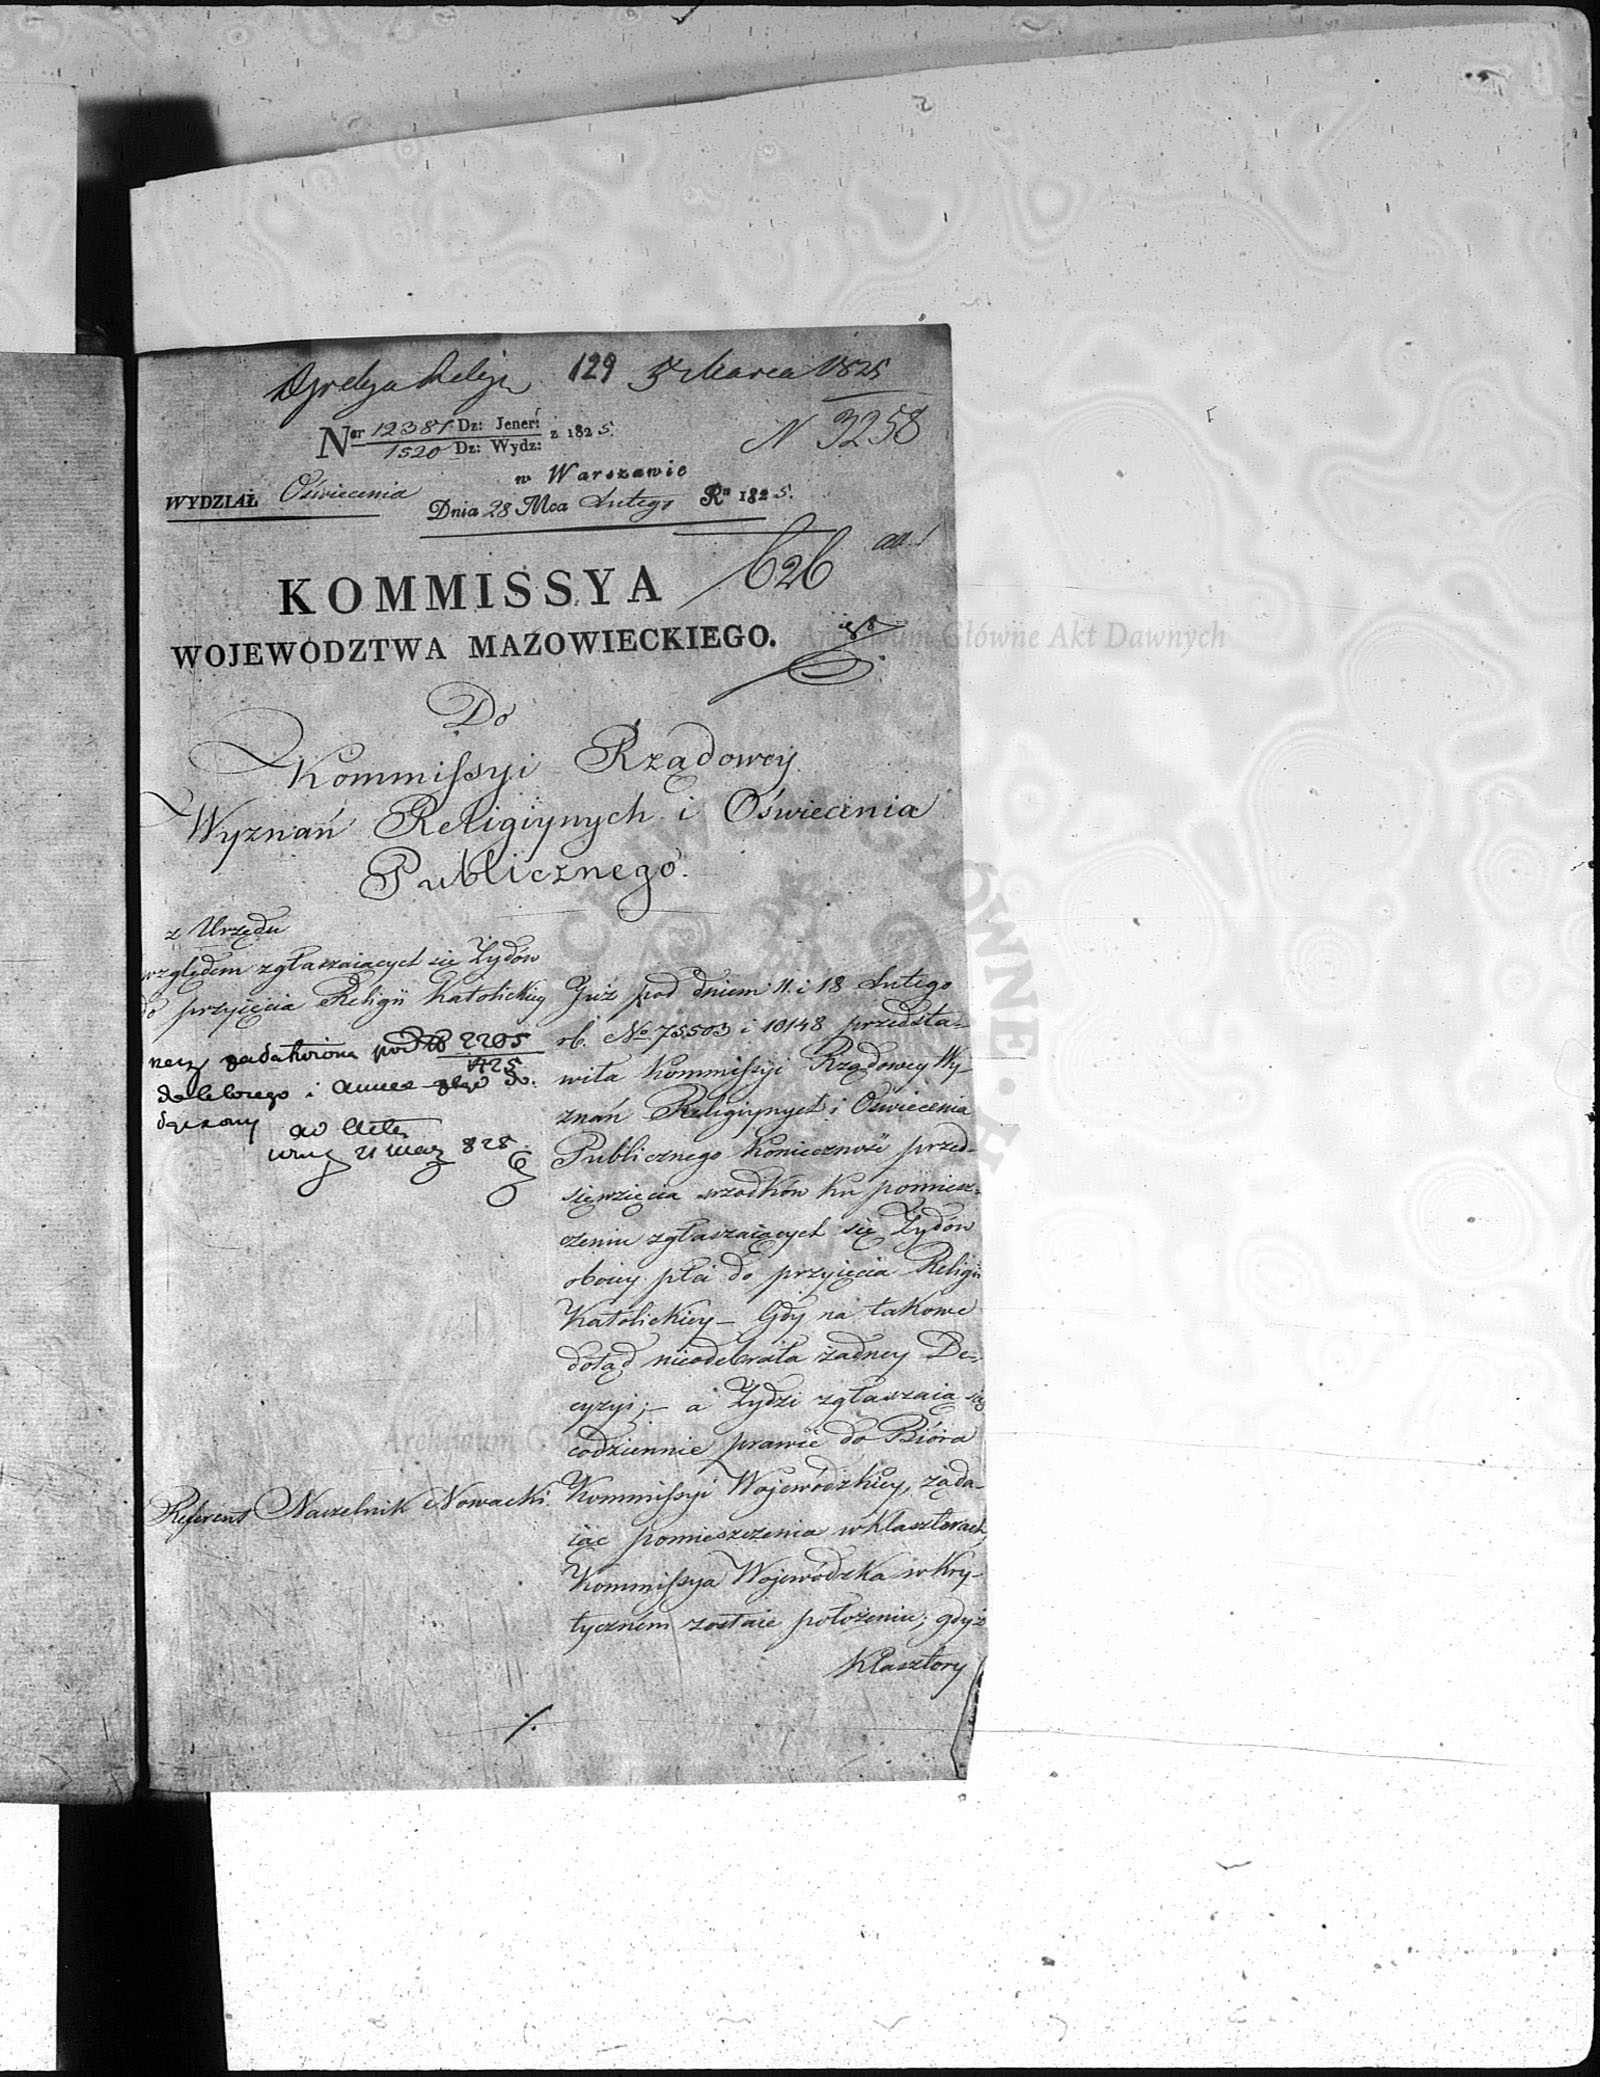 129 5 Marca 1825
N 3258
Ner 12387 Dz: Jener: z 1825.
1520 Dz: Wydz:
w Warszawie
WYDZIAŁ Oświecenia
Dnia 28 Mca Lutego Ru 1825.
626
KOMMISSYA
WOJEWÓDZTWA MAZOWIECKIEGO.
Archiwum Główne Akt Dawnych
Do
Kommissyi Rządowey
Wyznań Religiynych i Oświecenia
Publicznego.
z Urzędu
względem zgłaszaiących się Żydów
do przyięcia Religii Katolickiey
rzecz załatwiona pod 2205
825
do
ad Acta
21 Mar 825
Referent Naczelnik Nowacki.
Już pod dniem 11. i 18 Lutego
rb. No 75503 i 10148 przedsta-
wiła Kommissyi Rządowey Wy-
znań Religiynych i Oświecenia
Publicznego konieczność przed-
sięwzięcia srzodków ku pomiesz-
czeniu zgłaszaiących się Żydów
oboiey płci do przyięcia Religii
Katolickiey – Gdy na takowe
dotąd nieodebrała żadney De-
cyzyi; – a Żydzi zgłaszaią się
codziennie prawie do Bióra
Kommissyi Wojewódzkiey, żąda-
iąc pomieszczenia w klasztorach,
Kommissya Wojewódzka w kry-
tyczném zostaie położeniu; gdyż
Klasztory
./.